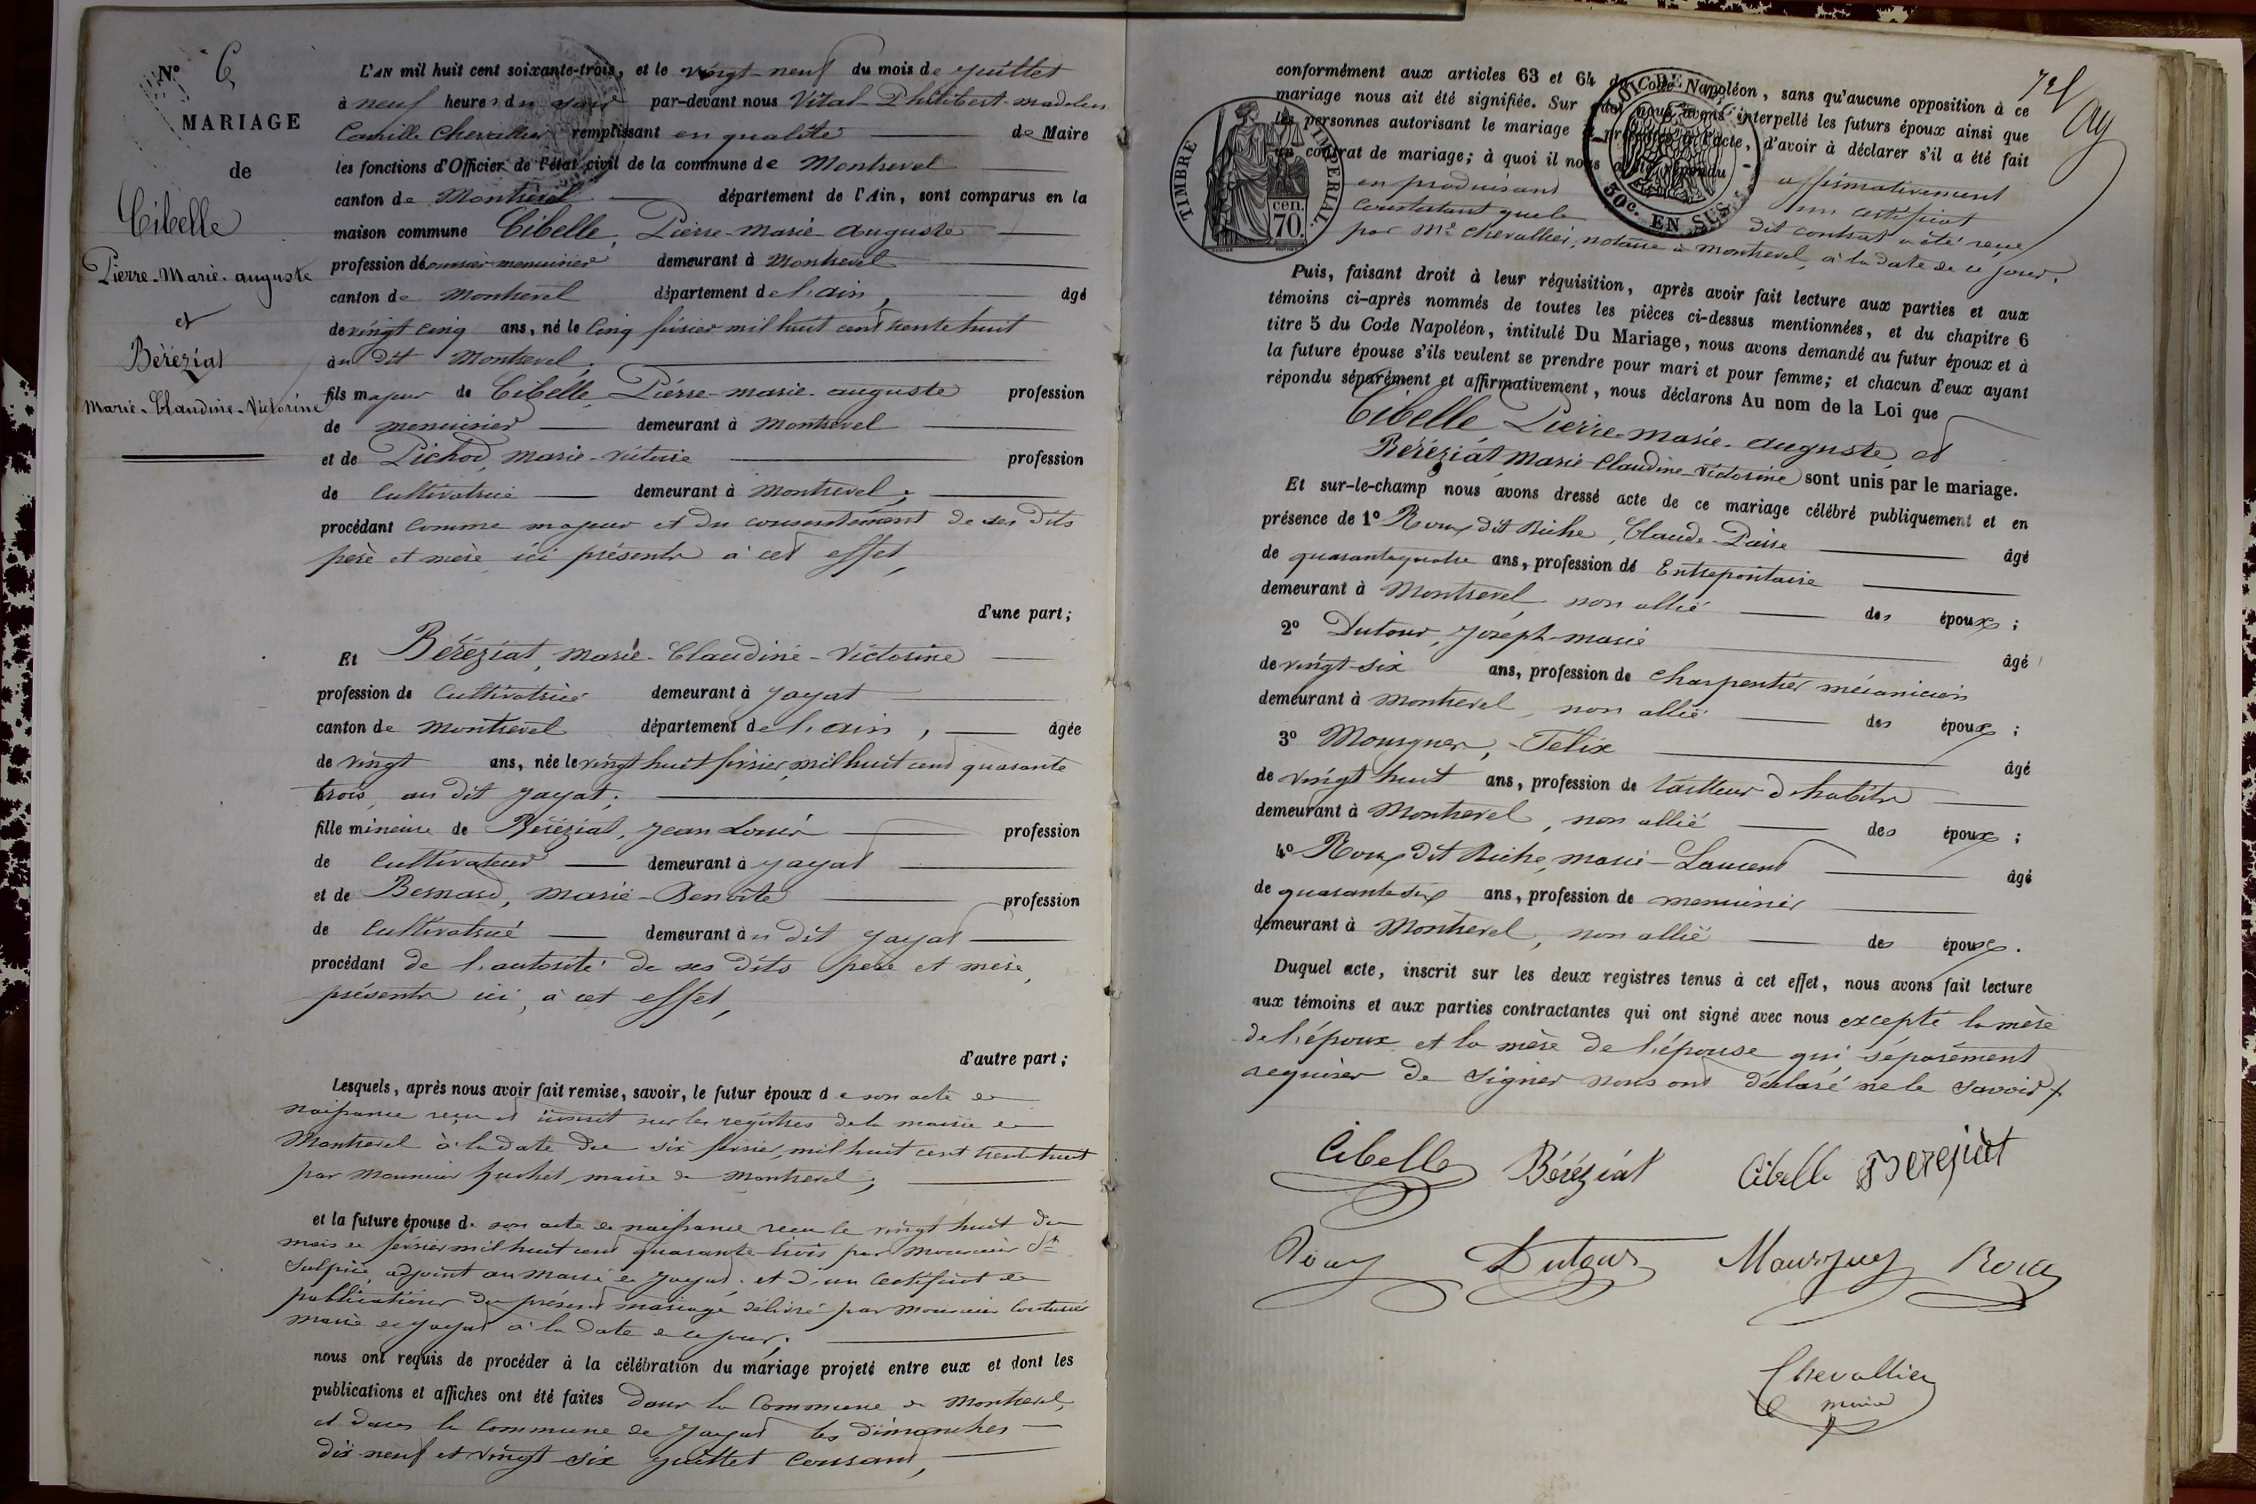 N° 6
MARIAGE
de
Cibelle
Pierre-Marie-auguste
et
Béréziat
Marie-Claudine-Victorine
L'AN mil huit cent soixante-trois, et le vingt-neuf du mois de juillet
à neuf heures du par-devant nous Vital-Philibert-madelen
Camille Chevallier remplissant en qualité de Maire
les fonctions d'Officier de l'état civil de la commune de Montrevel
canton de Montrevel département de l'Ain, sont comparus en la
maison commune Cibelle, Pierre-Marie-Auguste
profession d'ouvrier menuisier demeurant à Montrevel
canton de Montrevel département de l'ain, âgé
de vingt cinq ans, né le Cinq février mil huit cent trente huit
au dit Montrevel,
fils majeur de Cibelle, Pierre-marie-auguste profession
de menuisier demeurant à Montrevel
et de Pichod, marie-victoire profession
de Cultivatrice demeurant à Montrevel;
procédant comme majeur et du consentement de ses dits
père et mère ici présents à cet effet,
d'une part;
Et Béréziat, Marie-Claudine-Victorine
profession de Cultivatrice demeurant à Jayat
canton de Montrevel département de l'ain, âgée
de vingt ans, née le vingt huit février mil huit cent quarante
trois, au dit Jayat;
fille mineure de Béréziat, Jean Louis profession
de Cultivateur demeurant à Jayat
et de Bernard, Marie-Benoîte profession
de Cultivatrice demeurant au dit Jayat
procédant de l'autorité de ses dits père et mère,
présents ici, à cet effet,
d'autre part;
Lesquels, après nous avoir fait remise, savoir, le futur époux de son acte de
naissance reçu et inscrit sur les registres de la mairie de
Montrevel à la date du six février mil huit cent trente huit
par Monsieur maire de Montrevel;
et la future épouse de son acte de naissance reçu le vingt huit du
mois de février mil huit cent quarante-trois par Monsieur St
Sulpice, adjoint au Maire de Jayat. et d'un Certificat de
publications du présent mariage délivré par Monsieur
maire de Jayat à la date de ce jour;
nous ont requis de procéder à la célébration du mariage projeté entre eux et dont les
publications et affiches ont été faites dans la Commune de Montrevel,
et dans la Commune de Jayat les dimanches
dix-neuf et vingt-six juillet Courant,
conformément aux articles 63 et 64 du Code Napoléon, sans qu'aucune opposition à ce
mariage nous ait été signifiée. Sur quoi nous avons interpellé les futurs époux ainsi que
les personnes autorisant le mariage et présentes à l'acte, d'avoir à déclarer s'il a été fait
un contrat de mariage; à quoi il nous a été répondu affirmativement
en produisant un certificat
constatant que le dit contrat a été reçu
par Me Chevallier, notaire à Montrevel, à la date de ce jour.
TIMBRE IMPERIAL
70 cen.
50c. EN SUS
Puis, faisant droit à leur réquisition, après avoir fait lecture aux parties et aux
témoins ci-après nommés de toutes les pièces ci-dessus mentionnées, et du chapitre 6
titre 5 du Code Napoléon, intitulé Du Mariage, nous avons demandé au futur époux et à
la future épouse s'ils veulent se prendre pour mari et pour femme; et chacun d'eux ayant
répondu séparément et affirmativement, nous déclarons Au nom de la Loi que
Cibelle Pierre-marie-auguste, et
Béréziat Marie-Claudine-Victorine sont unis par le mariage.
Et sur-le-champ nous avons dressé acte de ce mariage célébré publiquement et en
présence de 1° Roux dit Riche, Claude- âgé
de quarante quatre ans, profession de Entrepositaire
demeurant à Montrevel non allié des époux;
2° Dutour, Joseph-marie âgé
de vingt-six ans, profession de Charpentier mécanicien
demeurant à Montrevel, non allié des époux;
3° Félix âgé
de vingt huit ans, profession de tailleur d'habits
demeurant à Montrevel, non allié des époux;
4° Roux dit Riche, Marie-Laurent âgé
de quarante six ans, profession de menuisier
demeurant à Montrevel, non allié des époux.
Duquel acte, inscrit sur les deux registres tenus à cet effet, nous avons fait lecture
aux témoins et aux parties contractantes qui ont signé avec nous excepté la mère
de l'époux et la mère de l'épouse qui séparément
requises de signer nous ont déclaré ne le savoir
Cibelle Béréziat Cibelle Bereziat
Roux Dutour Roux
Chevallier
maire